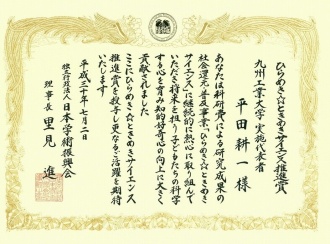 ひらめき☆ときめきサイエンス推進賞
九州工業大学 実施代表者
平田耕一 様
あなたは科研費による研究成果の
社会還元・普及事業「ひらめき☆ときめき
サイエンス」に継続的に熱心に取り組んで
いただき将来を担う子どもたちの科学
する心を育み知的好奇心の向上に大きく
貢献されました
ここにひらめき☆ときめきサイエンス
推進賞を授与し更なるご活躍を期待
いたします
平成三十年七月二日
独立行政法人 日本学術振興会
理事長 里見 進